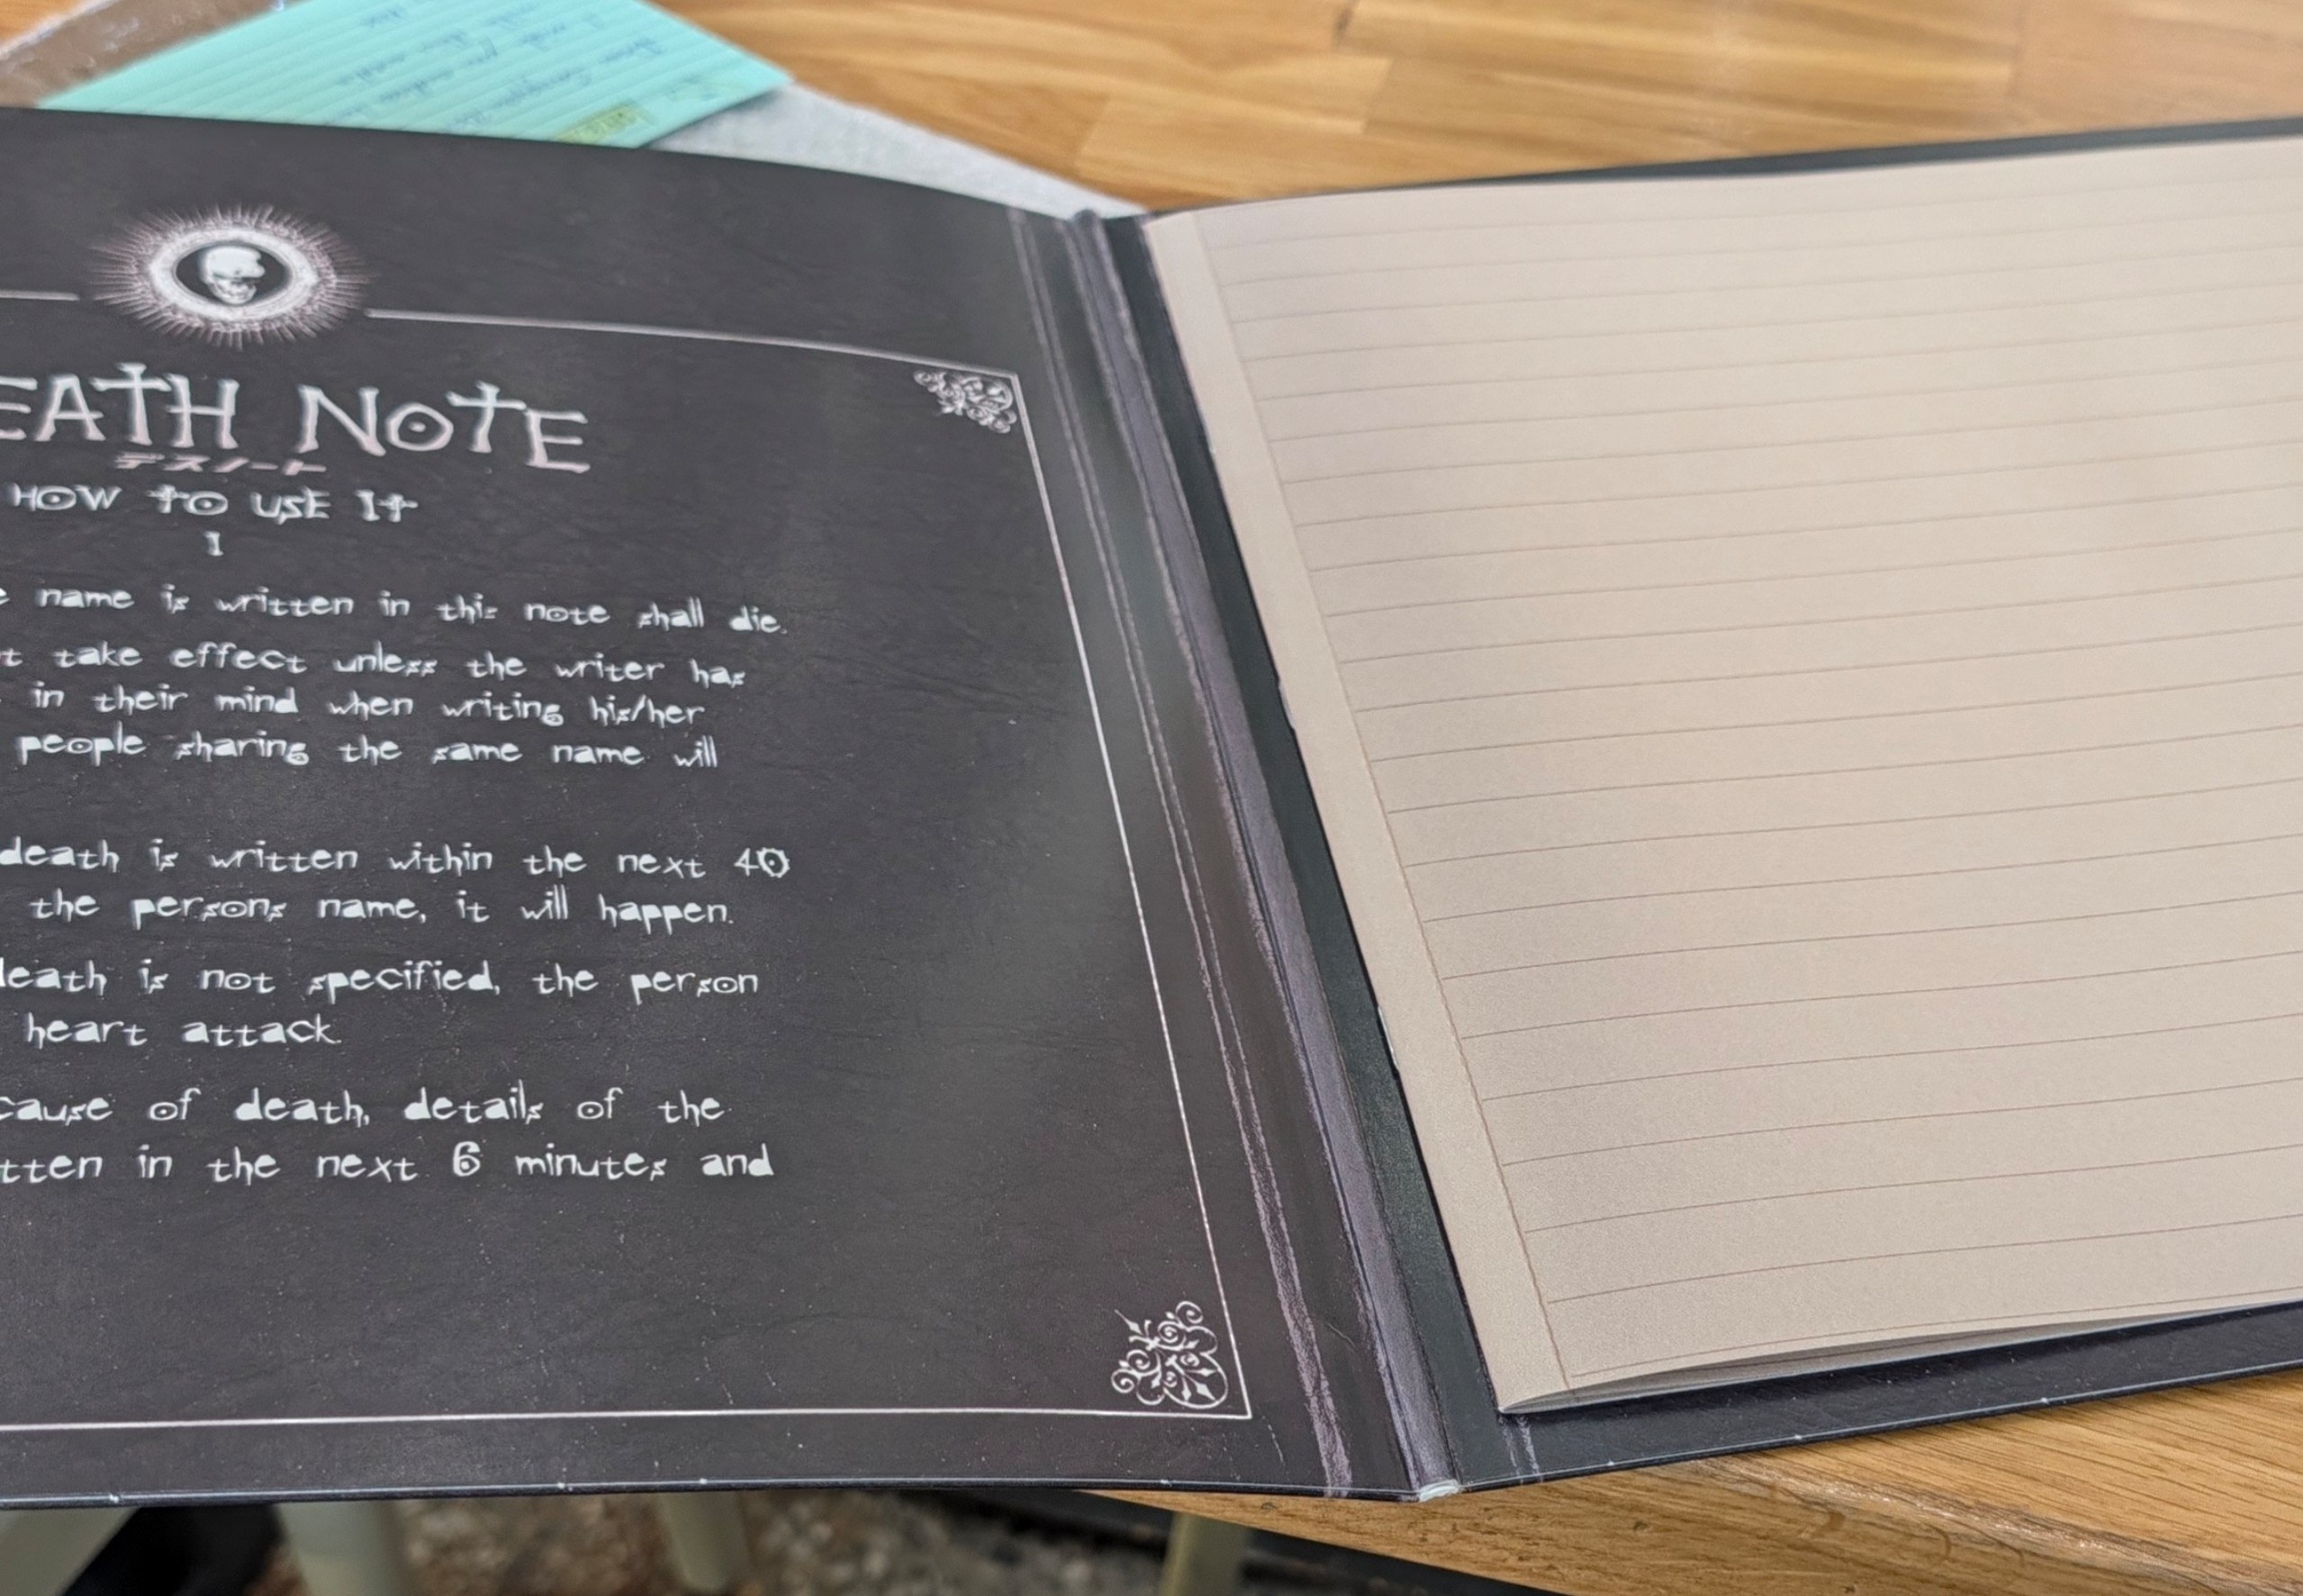 EATH NOTE
デスノート
HOW TO USE IT
I
name is written in this note shall die.
take effect unless the writer has
in their mind when writing his/her
people sharing the same name will
death is written within the next 40
the persons name, it will happen.
death is not specified, the person
heart attack.
cause of death, details of the
tten in the next 6 minutes and